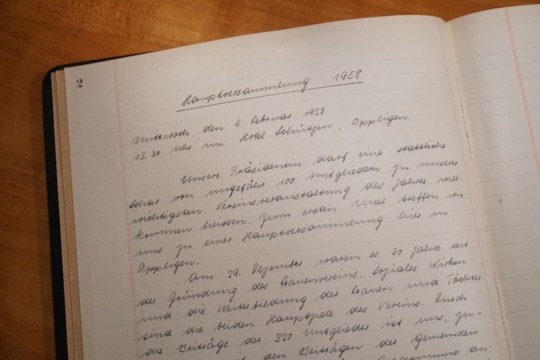 2
Hauptversammlung 1958
Mittwoch, den 5. Februar 1958
13.30 Uhr im Hotel Schützen, Oppligen.
Unsere Präsidentin darf eine stattliche
Schar von ungefähr 100 Mitgliedern zu unserer
wichtigsten Vereinsveranstaltung des Jahres will-
kommen heissen. Zum ersten Mal treffen wir
uns zu einer Hauptversammlung hier in
Oppligen.
Am 29. Dezember waren es 30 Jahre seit
der Gründung des Frauenvereins. Soziales Wirken
und die Weiterbildung der Frauen und Töchter
sind die beiden Hauptziele des Vereins. Durch
die Beiträge der 320 Mitglieder ist uns, zu-
mit den Beiträgen der Gemeinden
an